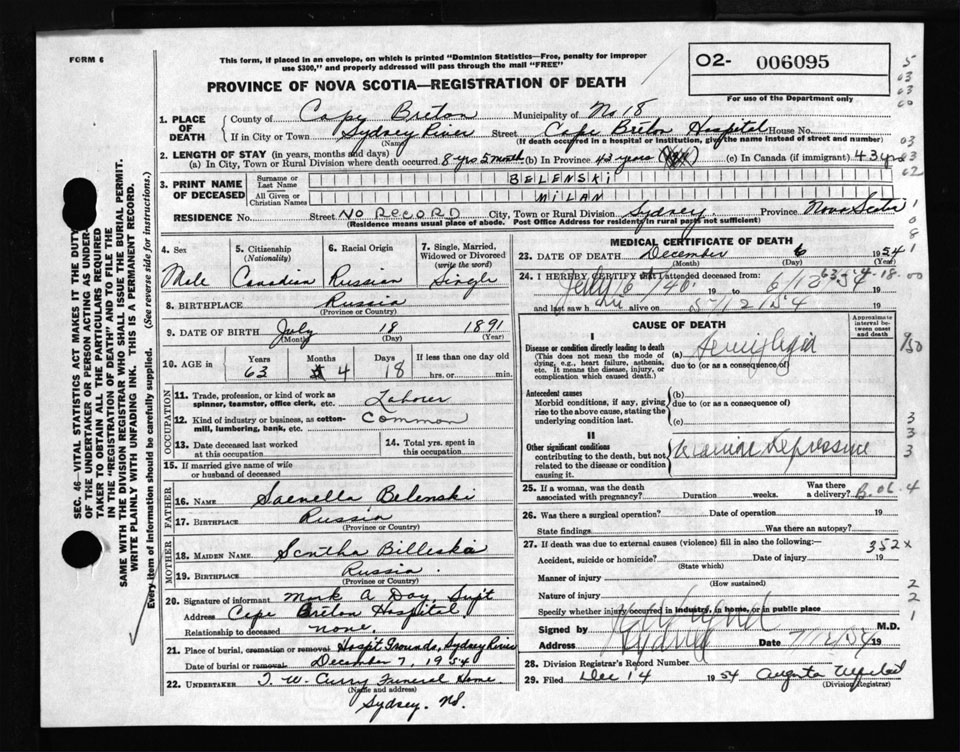 FORM 6
This form, if placed in an envelope, on which is printed "Dominion Statistics—Free, penalty for improper
use $300," and properly addressed will pass through the mail "FREE"
O2- 006095
For use of the Department only
PROVINCE OF NOVA SCOTIA—REGISTRATION OF DEATH
1. PLACE OF DEATH
County of Cape Breton Municipality of No 18
If in City or Town Sydney River Street Cape Breton Hospital House No.
(Name) (If death occurred in a hospital or institution, give the name instead of street and number)
2. LENGTH OF STAY (in years, months and days)
(a) In City, Town or Rural Division where death occurred 8 yrs 5 month (b) In Province 43 years (c) In Canada (if immigrant) 43 yrs
3. PRINT NAME OF DECEASED
Surname or Last Name BELENSKI
All Given or Christian Names MILAN
RESIDENCE No. Street NO RECORD City, Town or Rural Division Sydney Province Nova Scotia
(Residence means usual place of abode. Post Office Address for residents in rural parts not sufficient)
4. Sex Male
5. Citizenship (Nationality) Canadian
6. Racial Origin Russian
7. Single, Married, Widowed or Divorced (write the word) Single
8. BIRTHPLACE Russia
(Province or Country)
9. DATE OF BIRTH July 18 1891
(Month) (Day) (Year)
10. AGE in Years 63 Months 4 Days 18 If less than one day old hrs. or min.
OCCUPATION
11. Trade, profession, or kind of work as spinner, teamster, office clerk, etc. Laborer
12. Kind of industry or business, as cotton-mill, lumbering, bank, etc. Common
13. Date deceased last worked at this occupation
14. Total yrs. spent in this occupation
15. If married give name of wife or husband of deceased
FATHER
16. NAME Belenski
17. BIRTHPLACE Russia
(Province or Country)
MOTHER
18. MAIDEN NAME Billeskia
19. BIRTHPLACE Russia
(Province or Country)
20. Signature of informant Mark A Day, Supt
Address Cape Breton Hospital
Relationship to deceased none
21. Place of burial, cremation or removal Hospt Grounds, Sydney River
Date of burial or removal December 7, 1954
22. UNDERTAKER T. W. Curry Funeral Home
(Name and address)
Sydney. NS.
MEDICAL CERTIFICATE OF DEATH
23. DATE OF DEATH December 6 1954
(Month) (Day) (Year)
24. I HEREBY CERTIFY that I attended deceased from
63-5 4-18-00
and last saw h alive on 5/12/54 19
CAUSE OF DEATH
Approximate interval between onset and death
I
Disease or condition directly leading to death
(This does not mean the mode of dying, e.g., heart failure, asthenia, etc. It means the disease, injury, or complication which caused death.)
(a) Hemiplegia
due to (or as a consequence of)
Antecedent causes
Morbid conditions, if any, giving rise to the above cause, stating the underlying condition last.
(b)
due to (or as a consequence of)
(c)
II
Other significant conditions
contributing to the death, but not related to the disease or condition causing it.
Depressive
25. If a woman, was the death associated with pregnancy? Duration weeks. Was there a delivery?
26. Was there a surgical operation? Date of operation 19
State findings Was there an autopsy?
27. If death was due to external causes (violence) fill in also the following: 352x
Accident, suicide or homicide? Date of injury 19
(State which)
Manner of injury
(How sustained)
Nature of injury
Specify whether injury occurred in industry, in home, or in public place
Signed by M.D.
Address Sydney Date 7/12/54 19
28. Division Registrar's Record Number
29. Filed Dec 14 1954 Augusta
(Division Registrar)
SEC. 46—VITAL STATISTICS ACT MAKES IT THE DUTY
OF THE UNDERTAKER OR PERSON ACTING AS UNDER-
TAKER TO OBTAIN ALL THE PARTICULARS REQUIRED
IN THE "REGISTRATION OF DEATH" AND TO FILE THE
SAME WITH THE DIVISION REGISTRAR WHO SHALL ISSUE THE BURIAL PERMIT.
WRITE PLAINLY WITH UNFADING INK. THIS IS A PERMANENT RECORD.
Every item of information should be carefully supplied. (See reverse side for instructions.)